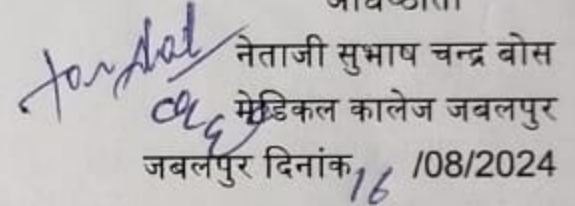 अधिष्ठाता
नेताजी सुभाष चन्द्र बोस
मेडिकल कालेज जबलपुर
जबलपुर दिनांक 16 /08/2024